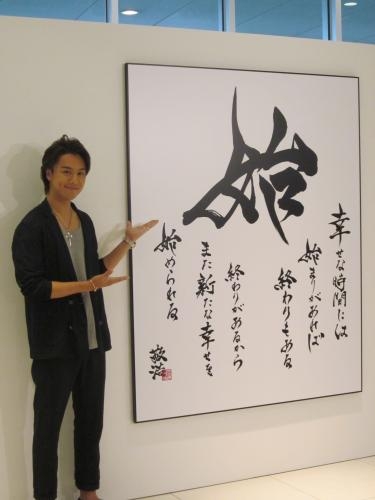 始
幸せな時間には
始まりがあれば
終わりもある
終わりがあるから
また新たな幸せを
始められる
敬浩